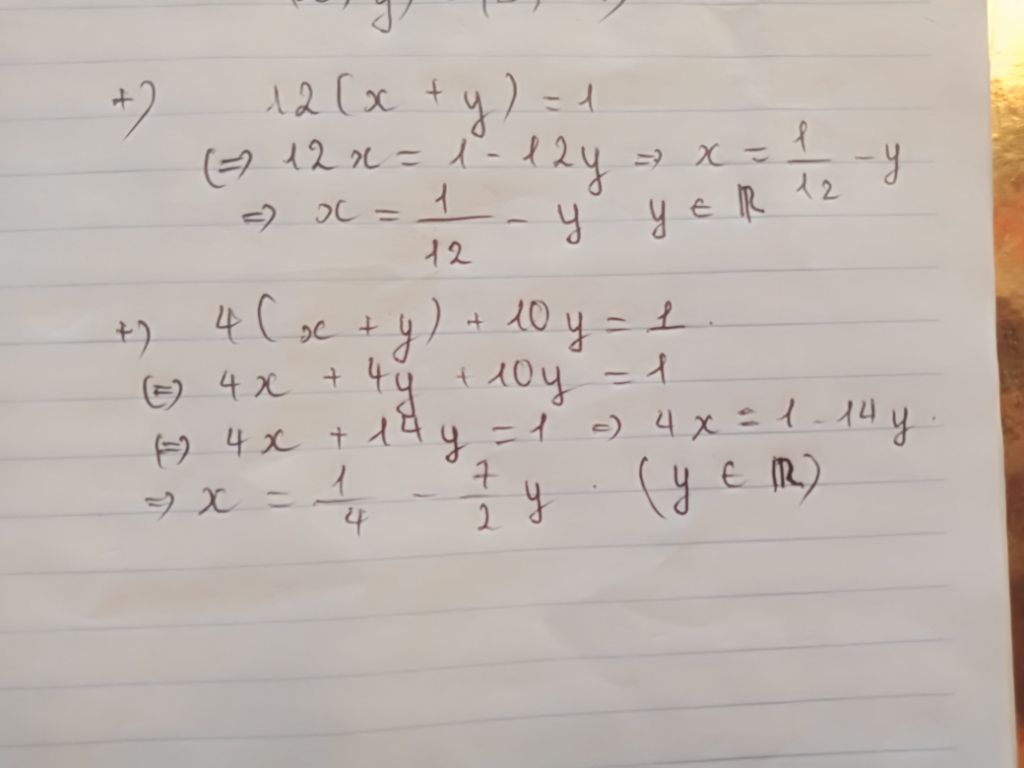 +) 12(x + y) = 1
(=) 12x = 1 - 12y => x = 1/12 - y
=> x = 1/12 - y y ∈ ℝ
+) 4(x + y) + 10y = 1.
(=) 4x + 4y + 10y = 1
(=) 4x + 14y = 1 => 4x = 1 - 14y.
=> x = 1/4 - 7/2 y. (y ∈ ℝ)